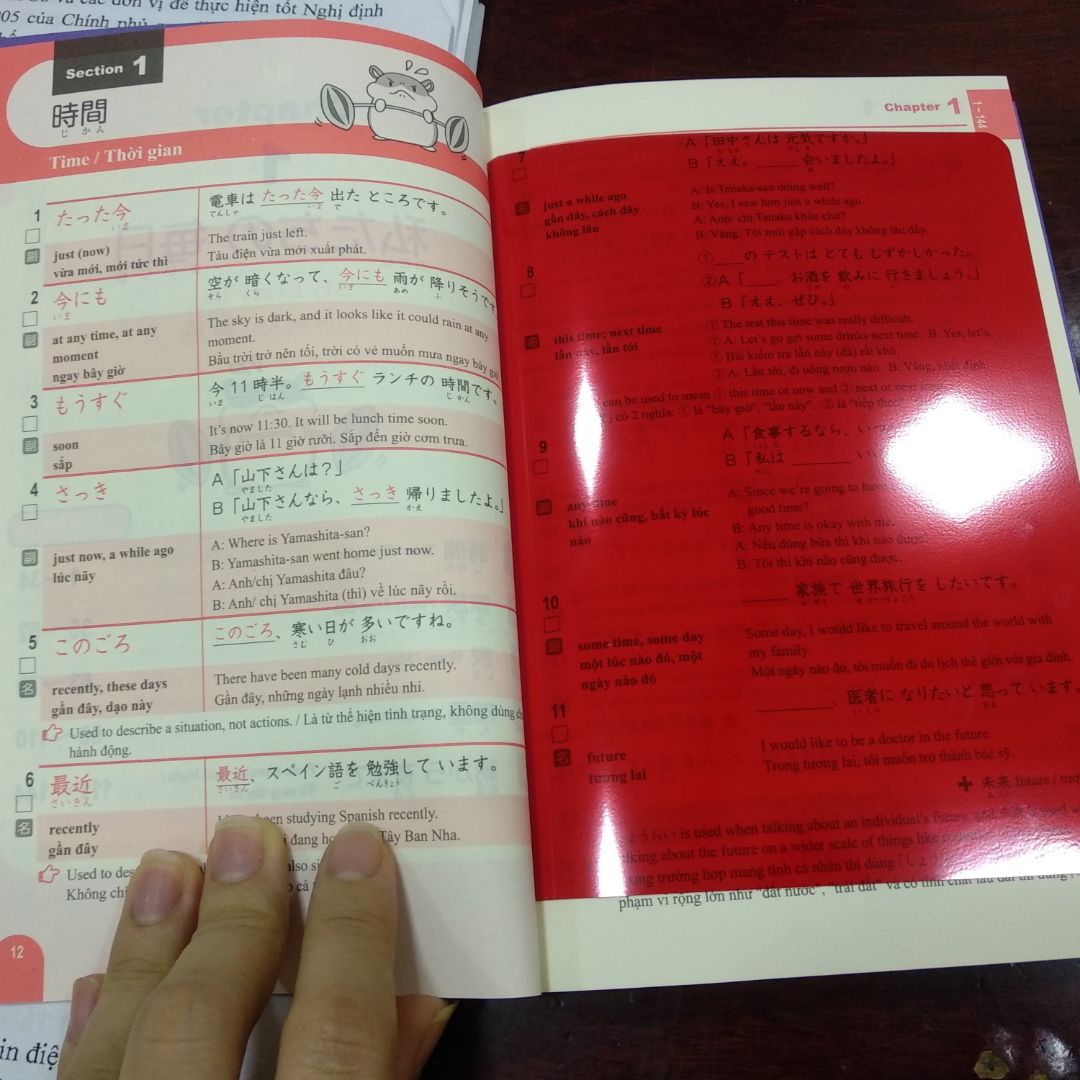 các đơn vị để thực hiện tốt Nghị định
05 của Chính phủ
Section 1
時間
じかん
Time / Thời gian
1
たった今
いま
電車は たった今 出た ところです。
でんしゃ いま で
副
just (now)
vừa mới, mới tức thì
The train just left.
Tàu điện vừa mới xuất phát.
2
今にも
いま
空が 暗くなって、今にも 雨が 降りそうです
そら くら いま あめ ふ
副
at any time, at any
moment
ngay bây giờ
The sky is dark, and it looks like it could rain at any
moment.
Bầu trời trở nên tối, trời có vẻ muốn mưa ngay bây giờ
3
もうすぐ
今 11 時半。もうすぐ ランチの 時間です。
いま じはん じかん
副
soon
sắp
It's now 11:30. It will be lunch time soon.
Bây giờ là 11 giờ rưỡi. Sắp đến giờ cơm trưa.
4
さっき
A「山下さんは?」
やました
B「山下さんなら、さっき 帰りましたよ。」
やました かえ
副
just now, a while ago
lúc nãy
A: Where is Yamashita-san?
B: Yamashita-san went home just now.
A: Anh/chị Yamashita đâu?
B: Anh/ chị Yamashita (thì) về lúc nãy rồi.
5
このごろ
このごろ、寒い 日が 多いですね。
さむ ひ おお
名
recently, these days
gần đây, dạo này
There have been many cold days recently.
Gần đây, những ngày lạnh nhiều nhỉ.
Used to describe a situation, not actions. / Là từ thể hiện tình trạng, không dùng
hành động.
6
最近
さいきん
最近、スペイン語を 勉強して います。
さいきん ご べんきょう
名
recently
gần đây
been studying Spanish recently.
đang Tây Ban Nha.
Used to
Không
12
Chapter 1
7
A「田中さんは 元気ですか。」
たなか げんき
B「ええ。 会いましたよ。」
あ
名
just a while ago
gần đây, cách đây
không lâu
A: Is Tanaka-san doing well?
B: Yes. I saw him just a while ago.
A: Anh/ chị Tanaka khỏe chứ?
B: Vâng. Tôi mới gặp cách đây không lâu đấy.
8
① の テストは とても むずかしかった。
②A「 、お酒を 飲みに 行きましょう。」
B「ええ、ぜひ。」
名
this time; next time
lần này, lần tới
① The test this time was really difficult.
② A: Let's go get some drinks next time. B: Yes, let's.
① Bài kiểm tra lần này (đã) rất khó.
② A: Lần tới, đi uống rượu nào. B: Vâng, nhất định.
can be used to mean ① this time or now and ② next or next
có 2 nghĩa: ① là "bây giờ", "lần này", ② là "tiếp theo"
9
A「食事するなら、いつ
B「私は
any time
khi nào cũng, bất kỳ lúc
nào
A: Since we're going to have
good time?
B: Any time is okay with me.
A: Nếu dùng bữa thì khi nào được
B: Tôi thì khi nào cũng được.
10
家族で 世界旅行を したいです。
かぞく せかいりょこう
副
some time, some day
một lúc nào đó, một
ngày nào đó
Some day, I would like to travel around the world with
my family.
Một ngày nào đó, tôi muốn đi du lịch thế giới với gia đình.
11
、医者に なりたいと 思って います。
いしゃ おも
名
future
tương lai
I would like to be a doctor in the future.
Trong tương lai, tôi muốn trở thành bác sỹ.
+ 未来 future /
みらい
ょうらい is used when talking about an individual's future, and
talking about the future on a wider scale of things like
trong trường hợp mang tính cá nhân thì dùng
phạm vi rộng lớn như "đất nước", "trái đất" và có tính chất